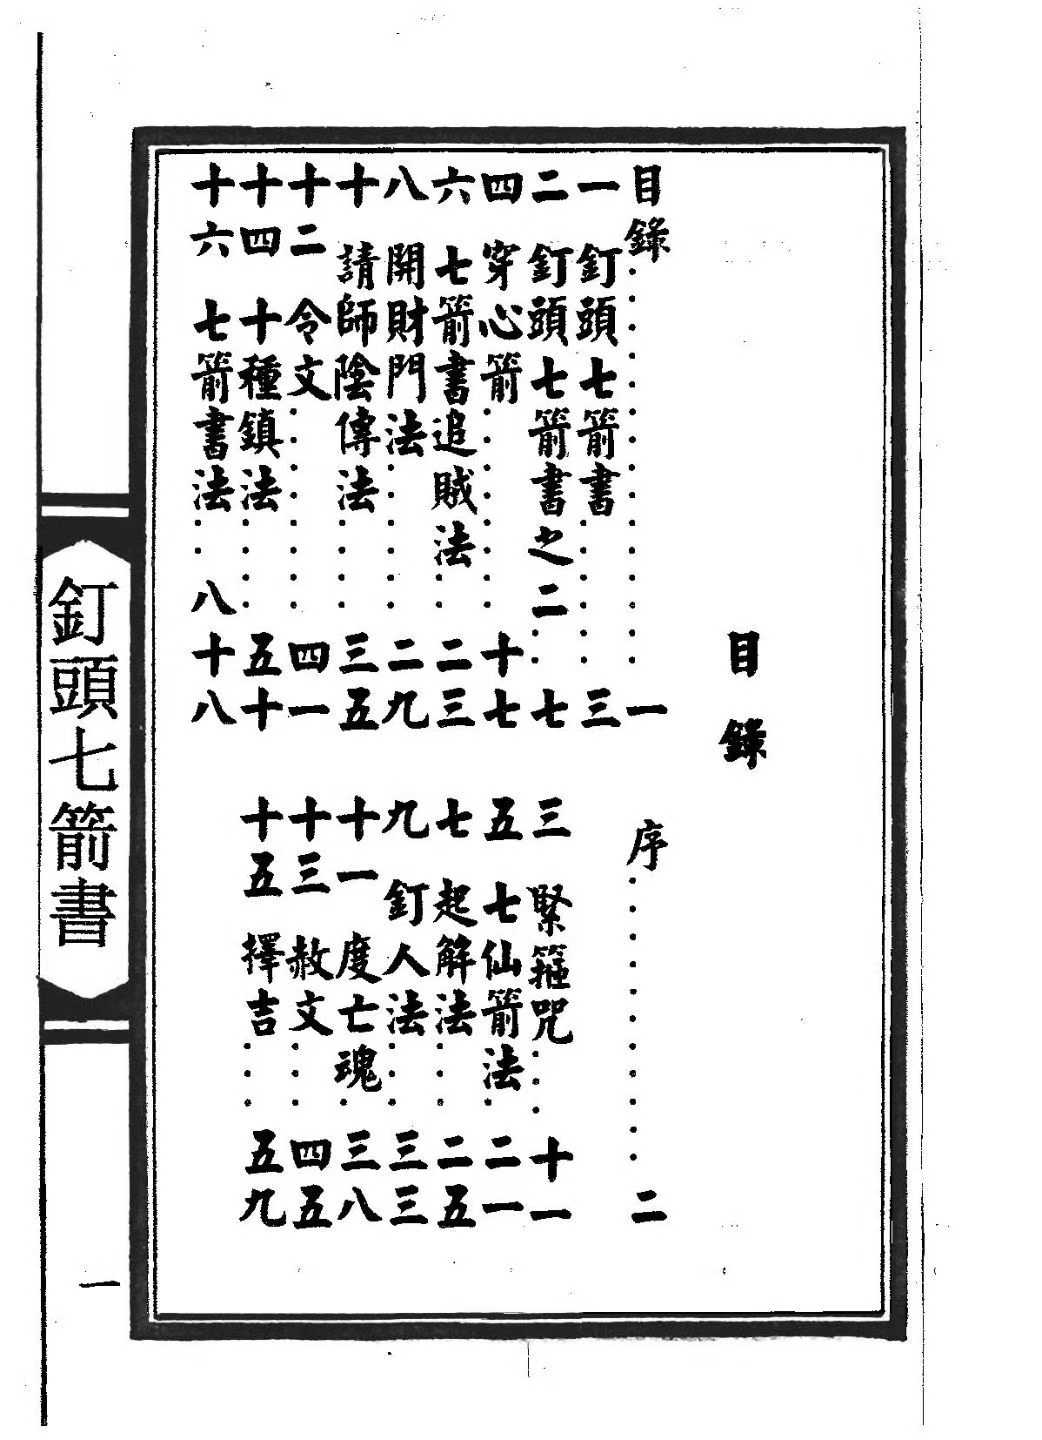 目錄
目錄⋯⋯⋯⋯一 序⋯⋯⋯⋯二
一 釘頭七箭書⋯⋯三
二 釘頭七箭書之二⋯⋯七 三 緊箍咒⋯⋯十一
四 穿心箭⋯⋯十七 五 七仙箭法⋯⋯二一
六 七箭書追賊法⋯⋯二三 七 起解法⋯⋯二五
八 開財門法⋯⋯二九 九 釘人法⋯⋯三三
十 請師陰傳法⋯⋯三五 十一 度亡魂⋯⋯三八
十二 令文⋯⋯四一 十三 赦文⋯⋯四五
十四 十種鎮法⋯⋯五十 十五 擇吉⋯⋯五九
十六 七箭書法⋯⋯八十八
釘頭七箭書
一